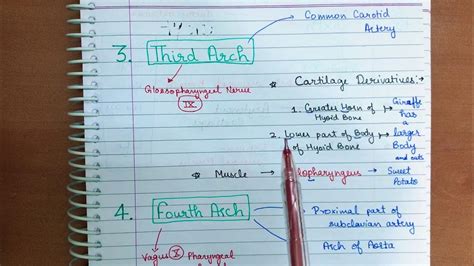 Common Carotid
Artery
3. Third Arch
Glossopharyngeal Nerve
IX
Cartilage Derivatives:
1. Greater Horn of → Giraffe
Hyoid Bone has
a
2. Lower part of Body → larger
of Hyoid Bone Body
and eats
Muscle → lopharyngeus → Sweet
Potato
4. Fourth Arch
Proximal part of
subclavian artery
Arch of Aorta
Vagus X Pharyngeal